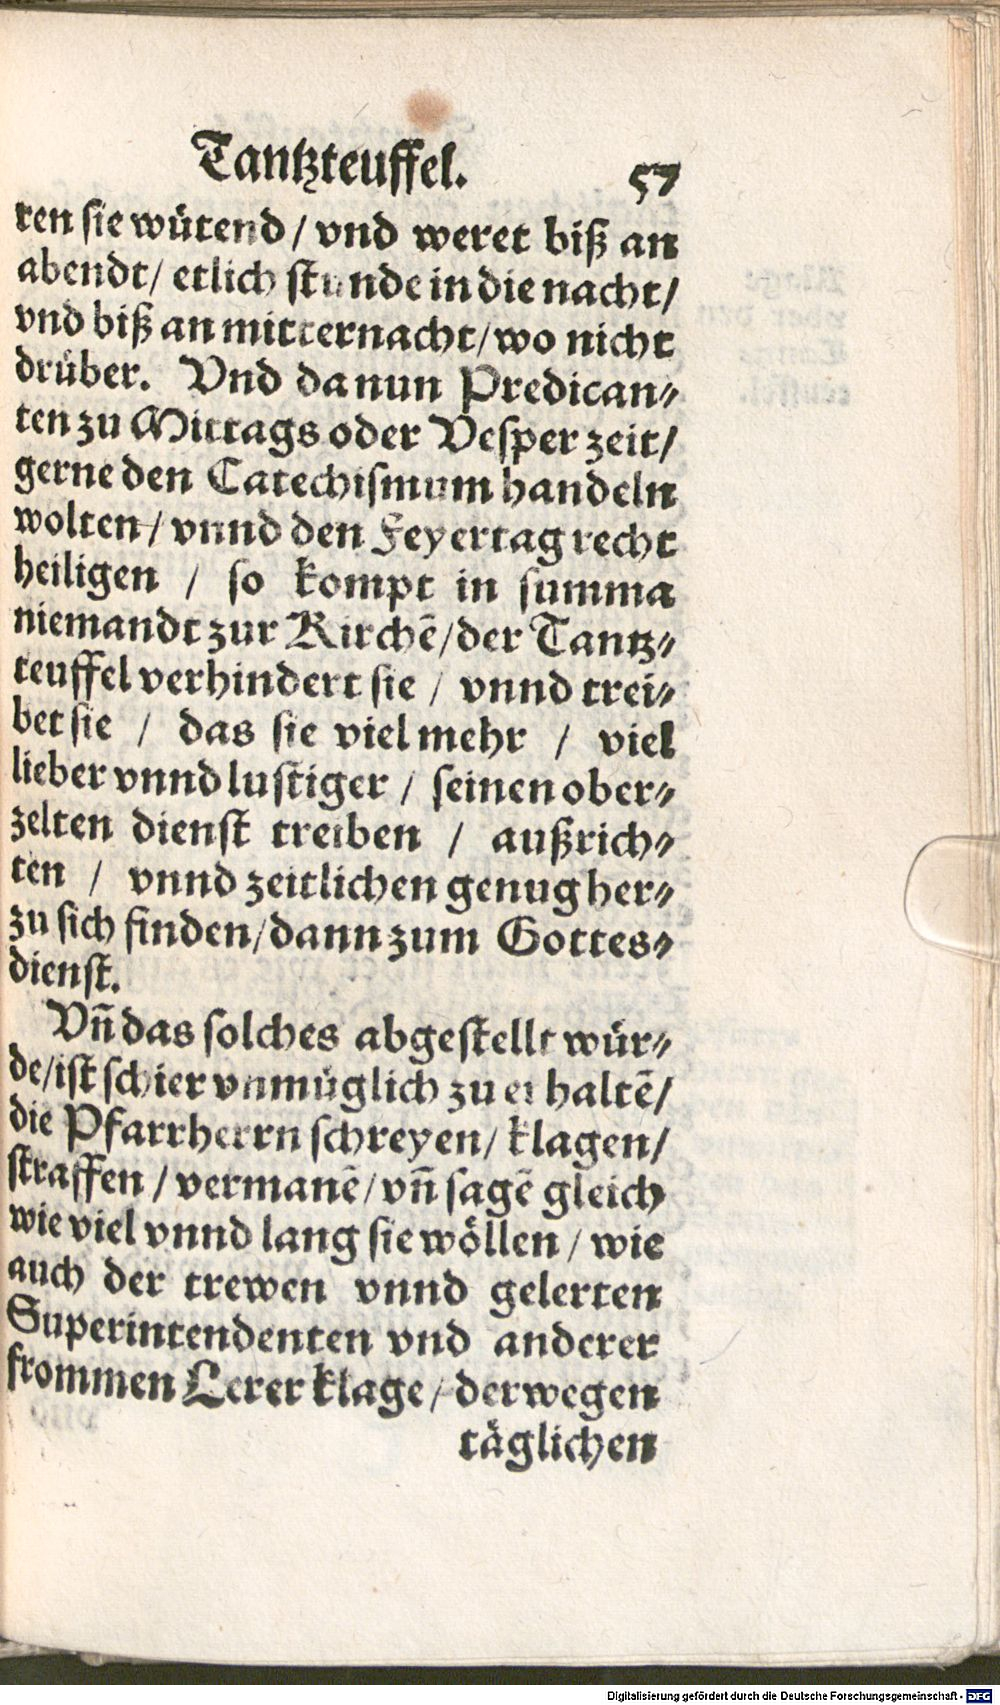 Tantzteuffel. 57
ren sie wütend / vnd weret biß an
abendt / etlich stunde in die nacht /
vnd biß an mitternacht / wo nicht
drüber. Vnd da nun Predican⸗
ten zu Mittags oder Vesper zeit /
gerne den Catechismum handeln
wolten / vnnd den Feyertag recht
heiligen / so kompt in summa
niemandt zur Kirchẽ / der Tantz⸗
teuffel verhindert sie / vnnd trei⸗
bet sie / das sie viel mehr / viel
lieber vnnd lustiger / seinen ober⸗
zelten dienst treiben / außrich⸗
ten / vnnd zeitlichen genug her⸗
zu sich finden / dann zum Gottes⸗
dienst.
Vñ das solches abgestellt wür⸗
de / ist schier vnmüglich zu erhaltẽ /
die Pfarrherrn schreyen / klagen /
straffen / vermanẽ / vñ sagẽ gleich
wie viel vnnd lang sie wöllen / wie
auch der trewen vnnd gelerten
Superintendenten vnd anderer
frommen Lerer klage / derwegen
täglichen
Digitalisierung gefördert durch die Deutsche Forschungsgemeinschaft - DFG